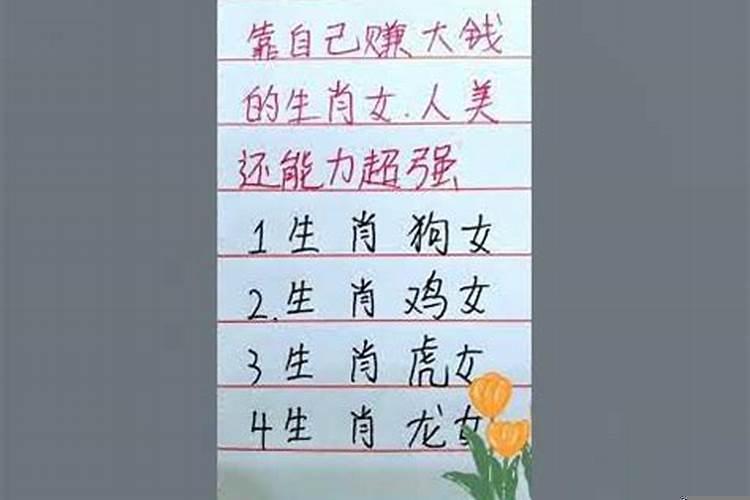 靠自己赚大钱
的生肖女.人美
还能力超强
1生肖狗女
2.生肖鸡女
3生肖虎女
4生肖龙女